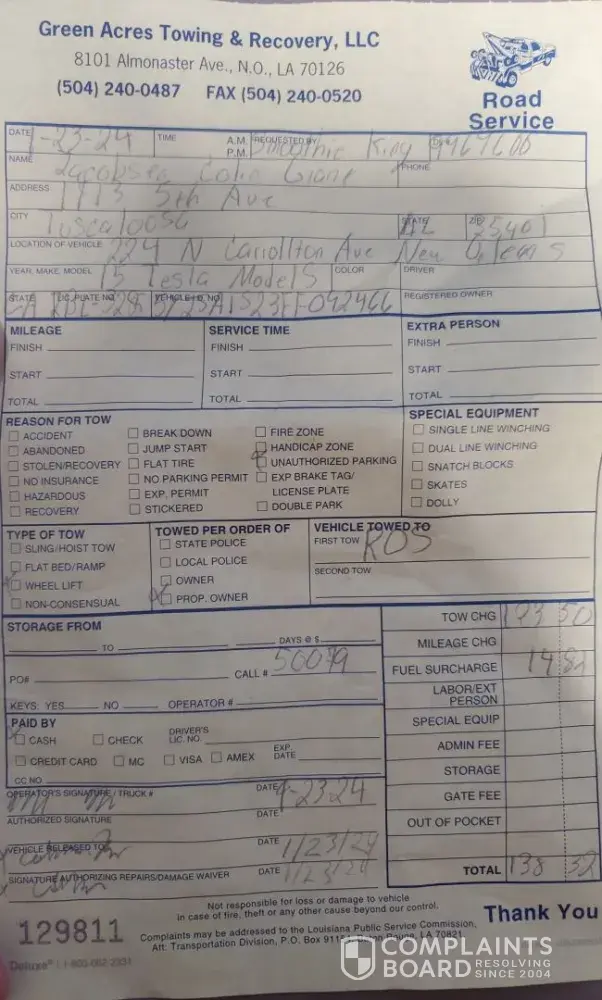 Green Acres Towing & Recovery, LLC
8101 Almonaster Ave., N.O., LA 70126
(504) 240-0487 FAX (504) 240-0520
Road Service
DATE 1-23-24 TIME A.M. P.M. REQUESTED BY Smoothie King
NAME Colin PHONE
ADDRESS 1113 5th Ave
CITY Tuscaloosa STATE AL ZIP 35401
LOCATION OF VEHICLE 224 N Carrollton Ave New Orleans
YEAR, MAKE, MODEL 15 Tesla Model S COLOR DRIVER
STATE LIC. PLATE NO. VEHICLE I.D. NO. REGISTERED OWNER
MILEAGE SERVICE TIME EXTRA PERSON
FINISH FINISH FINISH
START START START
TOTAL TOTAL TOTAL
REASON FOR TOW
ACCIDENT BREAK DOWN FIRE ZONE
ABANDONED JUMP START HANDICAP ZONE
STOLEN/RECOVERY FLAT TIRE UNAUTHORIZED PARKING
NO INSURANCE NO PARKING PERMIT EXP BRAKE TAG/
HAZARDOUS EXP. PERMIT LICENSE PLATE
RECOVERY STICKERED DOUBLE PARK
SPECIAL EQUIPMENT
SINGLE LINE WINCHING
DUAL LINE WINCHING
SNATCH BLOCKS
SKATES
DOLLY
TYPE OF TOW
SLING/HOIST TOW
FLAT BED/RAMP
WHEEL LIFT
NON-CONSENSUAL
TOWED PER ORDER OF
STATE POLICE
LOCAL POLICE
OWNER
PROP. OWNER
VEHICLE TOWED TO
FIRST TOW ROS
SECOND TOW
STORAGE FROM
TO DAYS @ $
PO# CALL # 50079
KEYS: YES NO OPERATOR #
PAID BY
CASH CHECK DRIVER'S LIC. NO.
CREDIT CARD MC VISA AMEX EXP. DATE
CC NO.
OPERATOR'S SIGNATURE / TRUCK # DATE 1-23-24
AUTHORIZED SIGNATURE DATE
VEHICLE RELEASED TO DATE 1/23/24
SIGNATURE AUTHORIZING REPAIRS/DAMAGE WAIVER DATE 1/23/24
TOW CHG 123 50
MILEAGE CHG
FUEL SURCHARGE 14 82
LABOR/EXT PERSON
SPECIAL EQUIP
ADMIN FEE
STORAGE
GATE FEE
OUT OF POCKET
TOTAL 138 32
Not responsible for loss or damage to vehicle
in case of fire, theft or any other cause beyond our control.
Thank You
129811
Complaints may be addressed to the Louisiana Public Service Commission,
Att: Transportation Division, P.O. Box Baton Rouge, LA 70821
Deluxe
COMPLAINTS BOARD
RESOLVING SINCE 2004